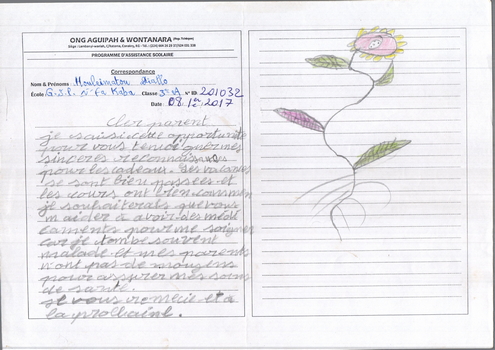 ONG AGUIPAH & WONTANARA
PROGRAMME D'ASSISTANCE SCOLAIRE
Correspondance
Nom & Prénoms : diallo
École G.S.P. Kaba Classe 3e A N° ID: 201032
Date: 08 2017
Cher parent
je saisi cette opportunité
pour vous
sincères reconnaissances
pour les cadeaux. les vacances
se sont bien passées et
les cours ont bien commen
je souhaiterais que vous
m'aider à avoir des médi
caments pour me soigner
car je tombe souvent
malade et mes parents
n'ont pas de moyens
pour assurer mes soins
de santé.
je vous remercie et à
la prochaine.